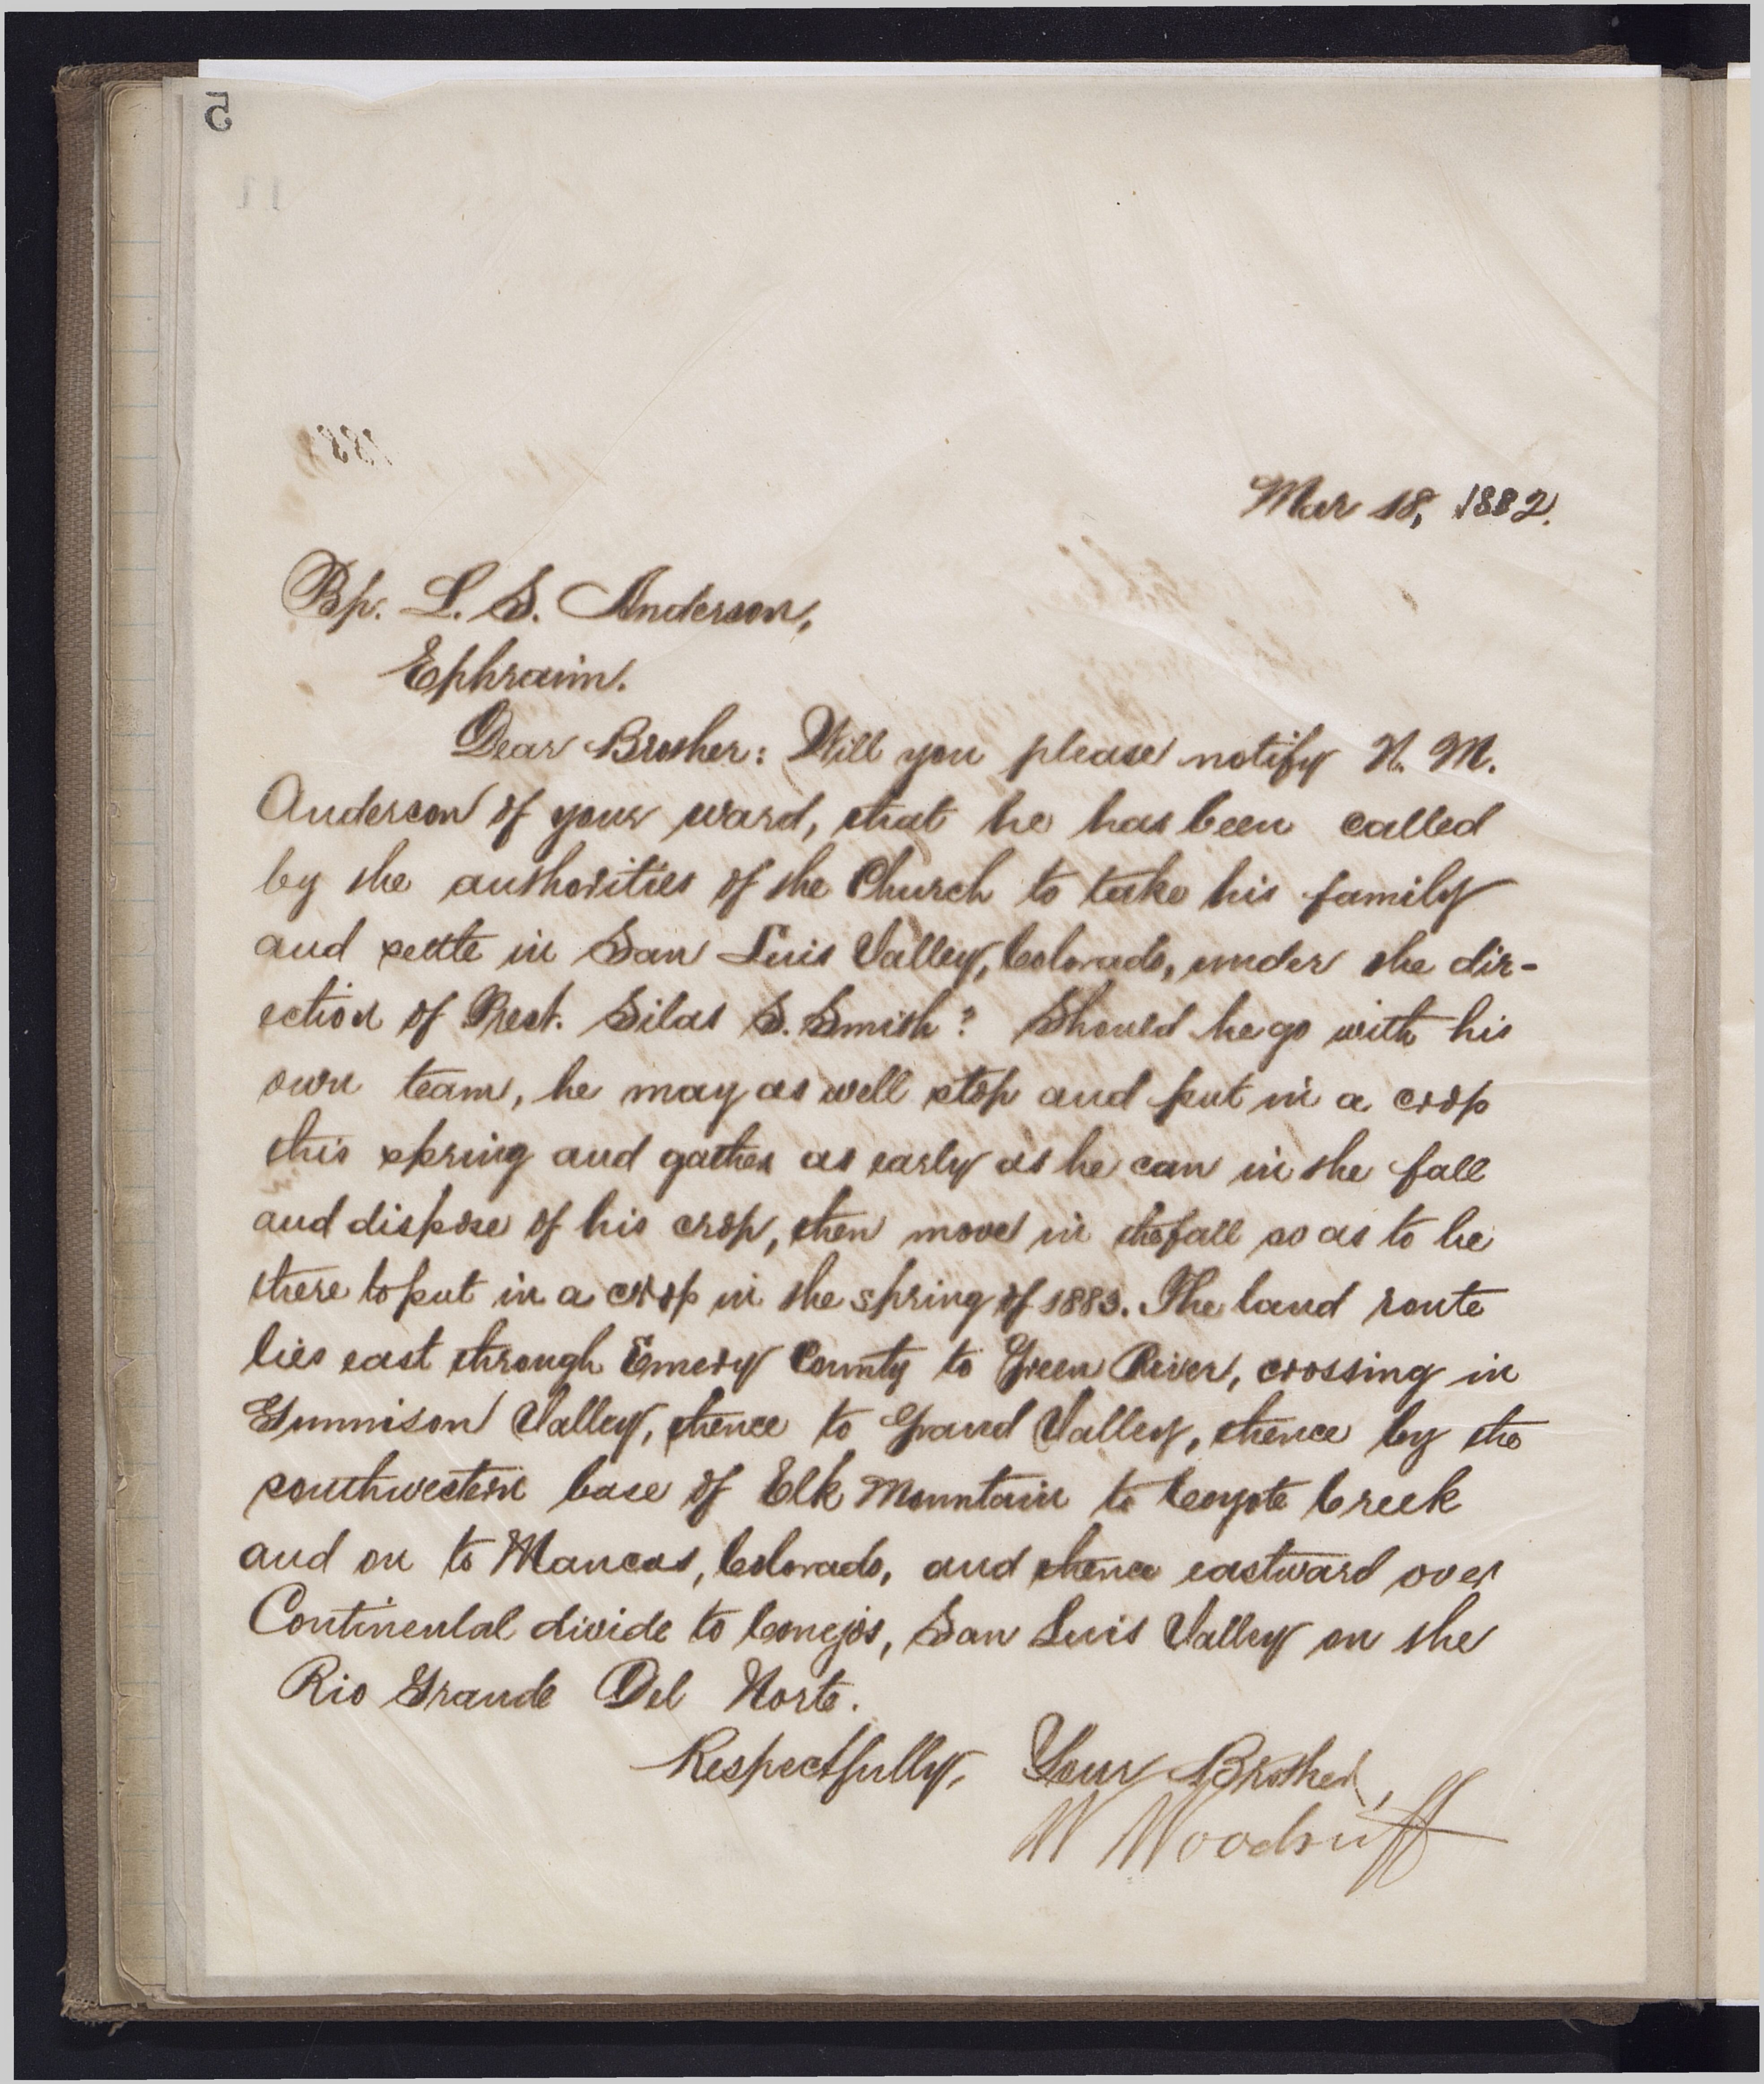 5
Mar 18, 1882.
Bp. L. S. Anderson,
Ephraim.
Dear Brother: Will you please notify N. M.
Anderson of your ward, that he has been called
by the authorities of the Church to take his family
and settle in San Luis Valley, Colorado, under the dir-
ection of Prest. Silas S. Smith? Should he go with his
own team, he may as well stop and put in a crop
this spring and gather as early as he can in the fall
and dispose of his crop, then move in the fall so as to be
there to put in a crop in the spring of 1883. The land route
lies east through Emery County to Green River, crossing in
Gunnison Valley, thence to Grand Valley, thence by the
southwestern base of Elk Mountain to Coyote Creek
and on to Mancos, Colorado, and thence eastward over
Continental divide to Conejos, San Luis Valley on the
Rio Grande Del Norte.
Respectfully, Your Brother,
W Woodruff